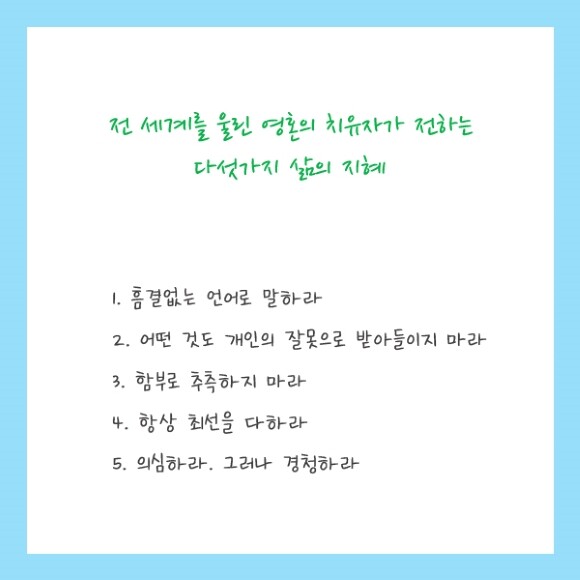 전 세계를 울린 영혼의 치유자가 전하는
다섯가지 삶의 지혜
1. 흠결없는 언어로 말하라
2. 어떤 것도 개인의 잘못으로 받아들이지 마라
3. 함부로 추측하지 마라
4. 항상 최선을 다하라
5. 의심하라. 그러나 경청하라